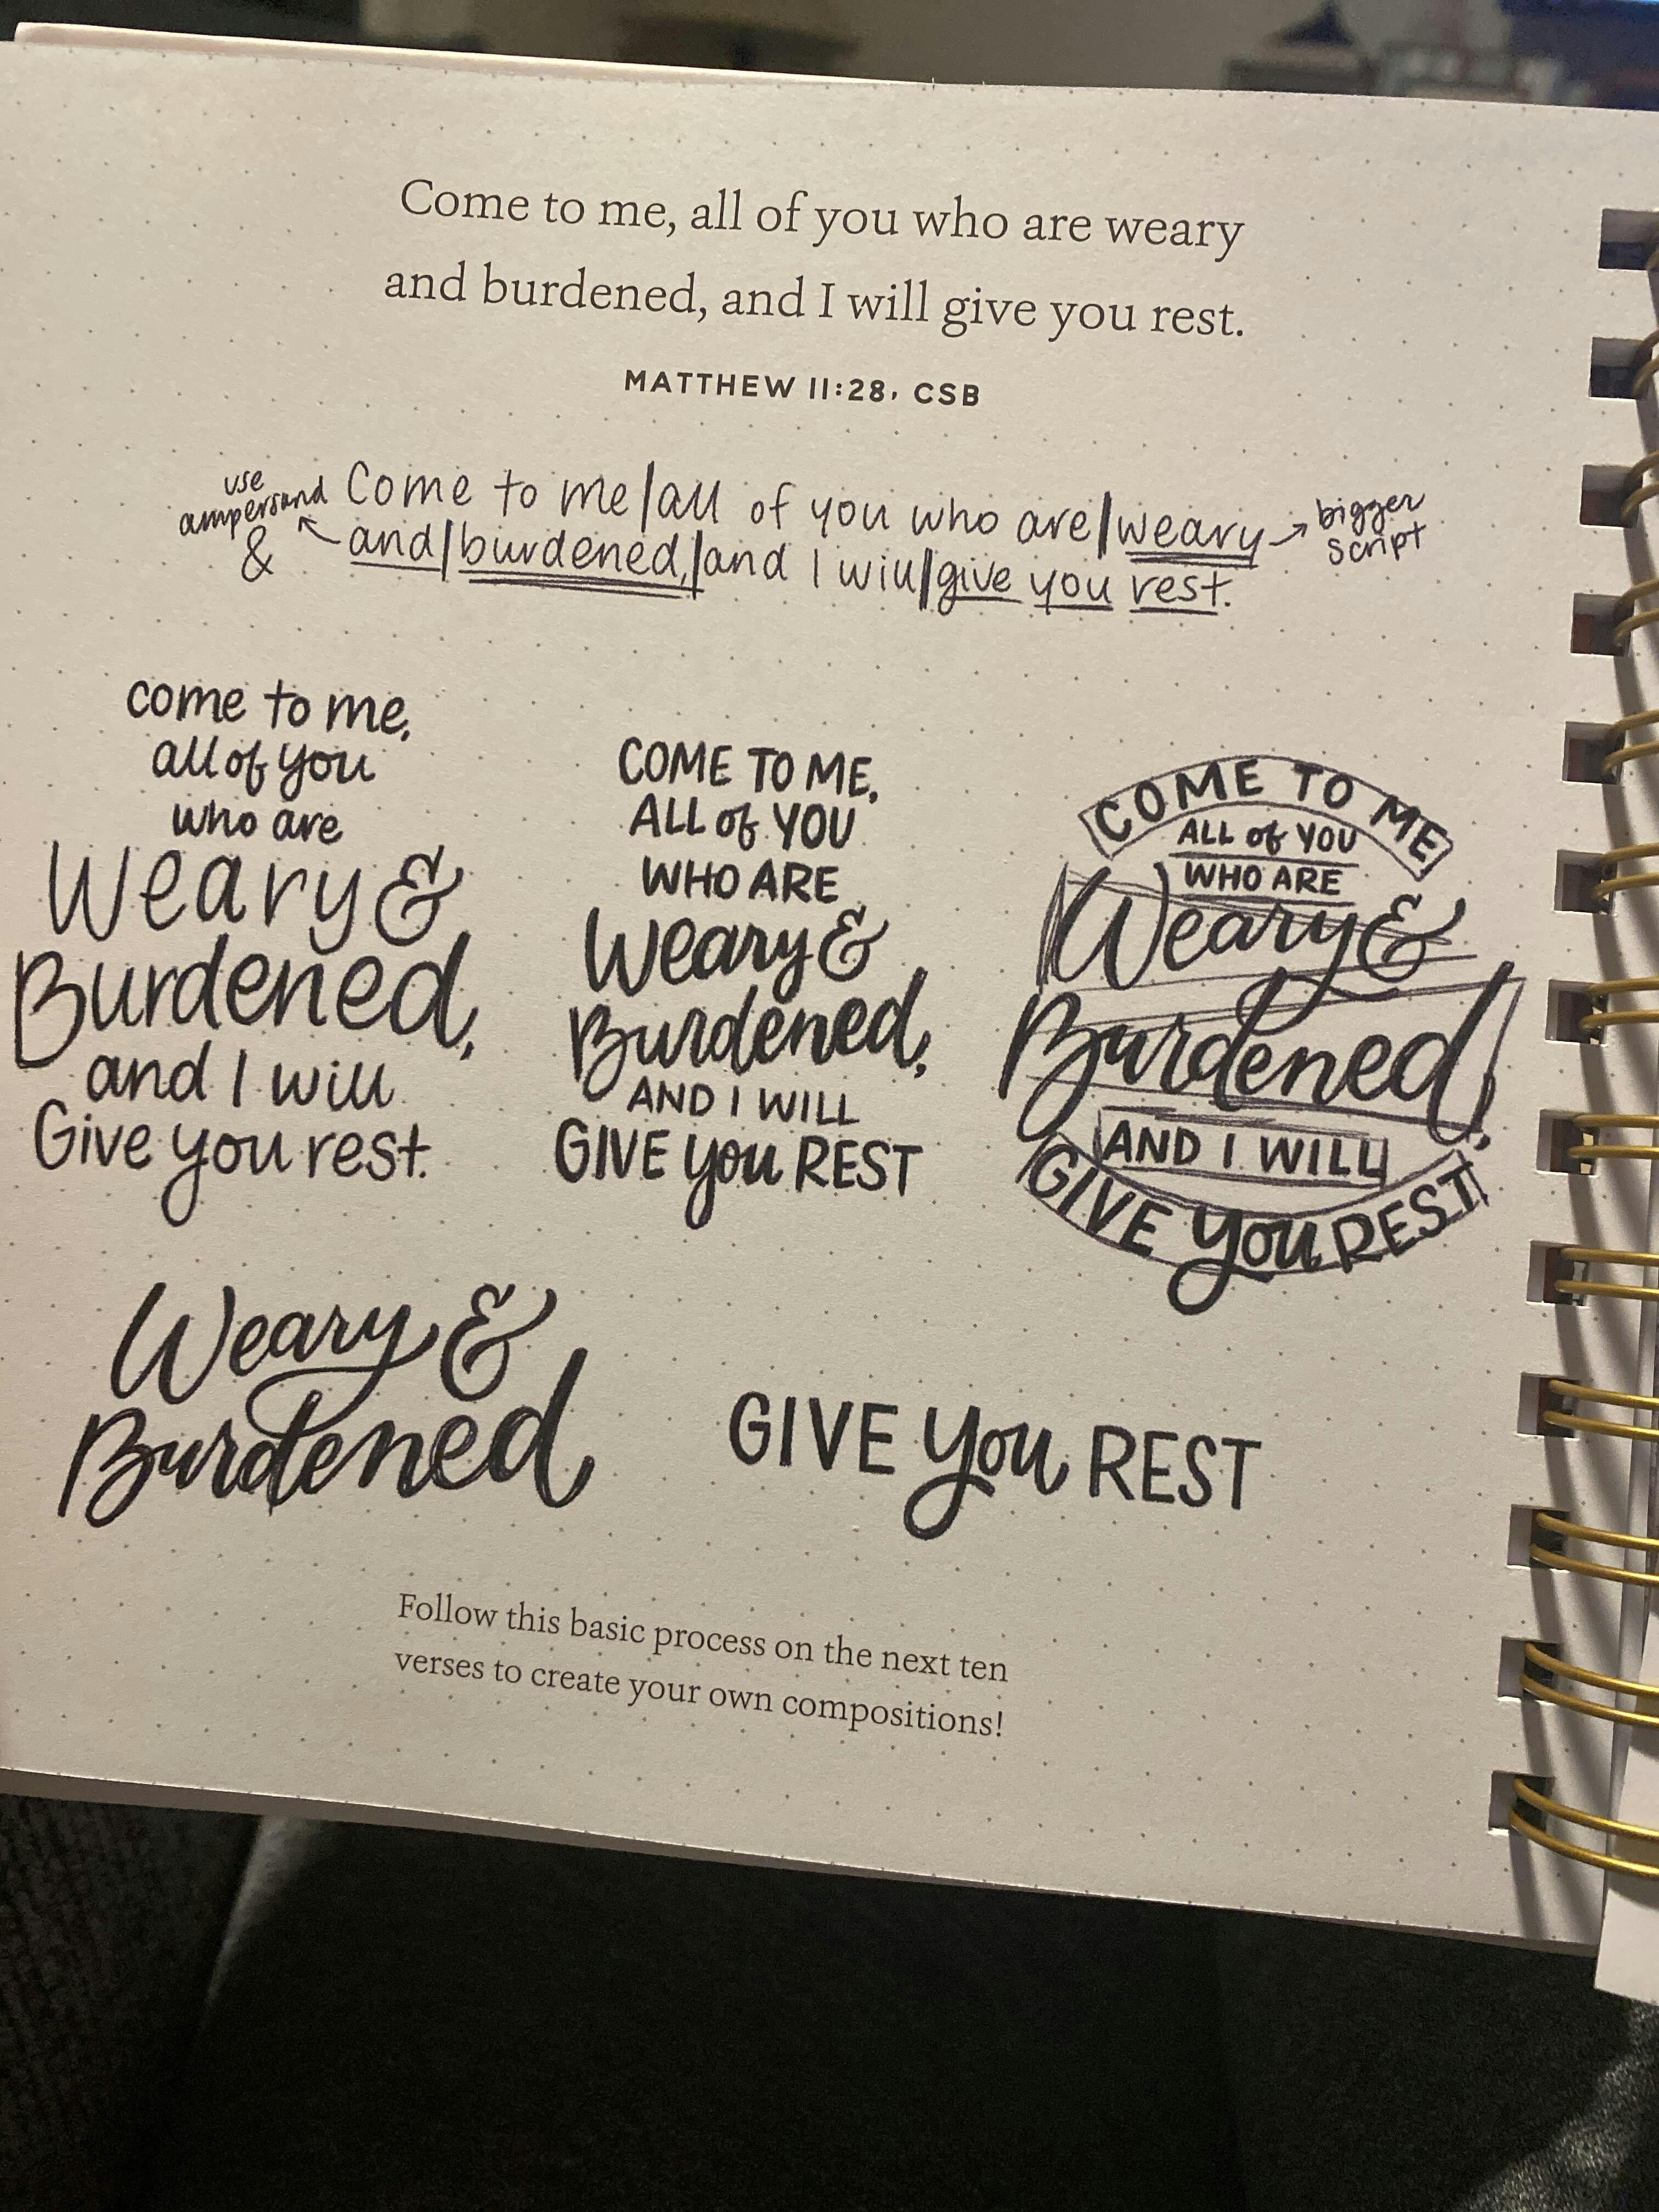 Come to me, all of you who are weary
and burdened, and I will give you rest.
MATTHEW 11:28, CSB
use
ampersand
&
Come to me/all of you who are/weary
bigger
script
and/burdened,/and I will/give you rest.
come to me,
all of you
who are
Weary &
Burdened,
and I will
Give you rest.
COME TO ME,
ALL of YOU
WHO ARE
Weary &
Burdened,
AND I WILL
GIVE you REST
COME TO ME
ALL of YOU
WHO ARE
Weary &
Burdened,
AND I WILL
GIVE you REST
Weary &
Burdened
GIVE you REST
Follow this basic process on the next ten
verses to create your own compositions!